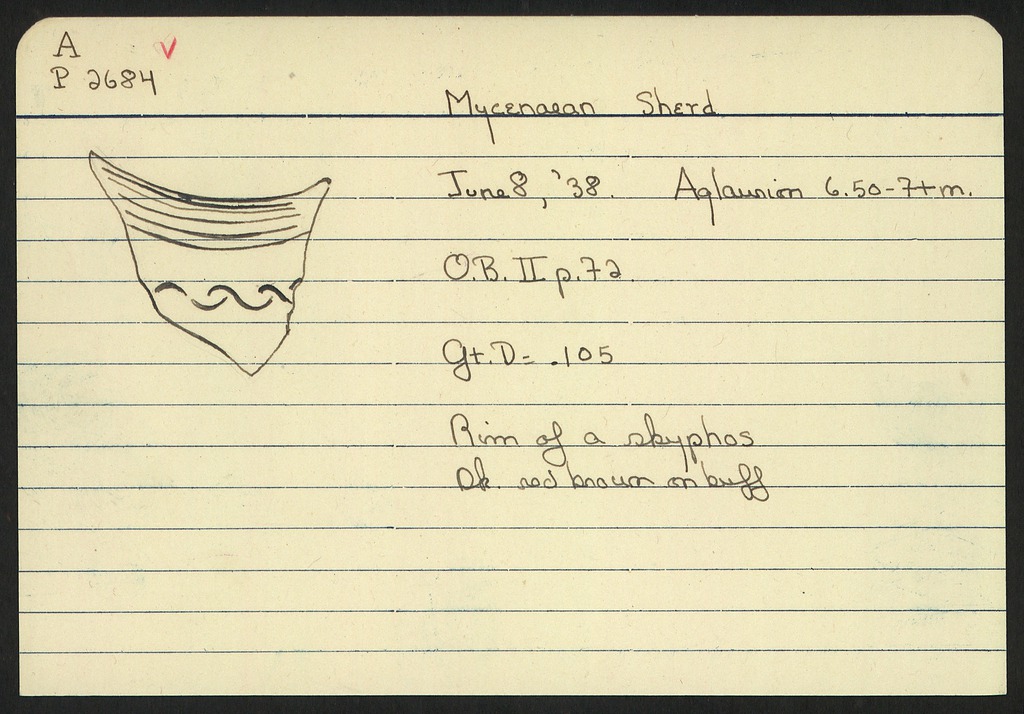 A
P 2684
Mycenaean Sherd
June 8, '38. Aglaurion 6.50-7+m.
O.B. II p.72
Gt.D= .105
Rim of a skyphos
Dk. red brown on buff